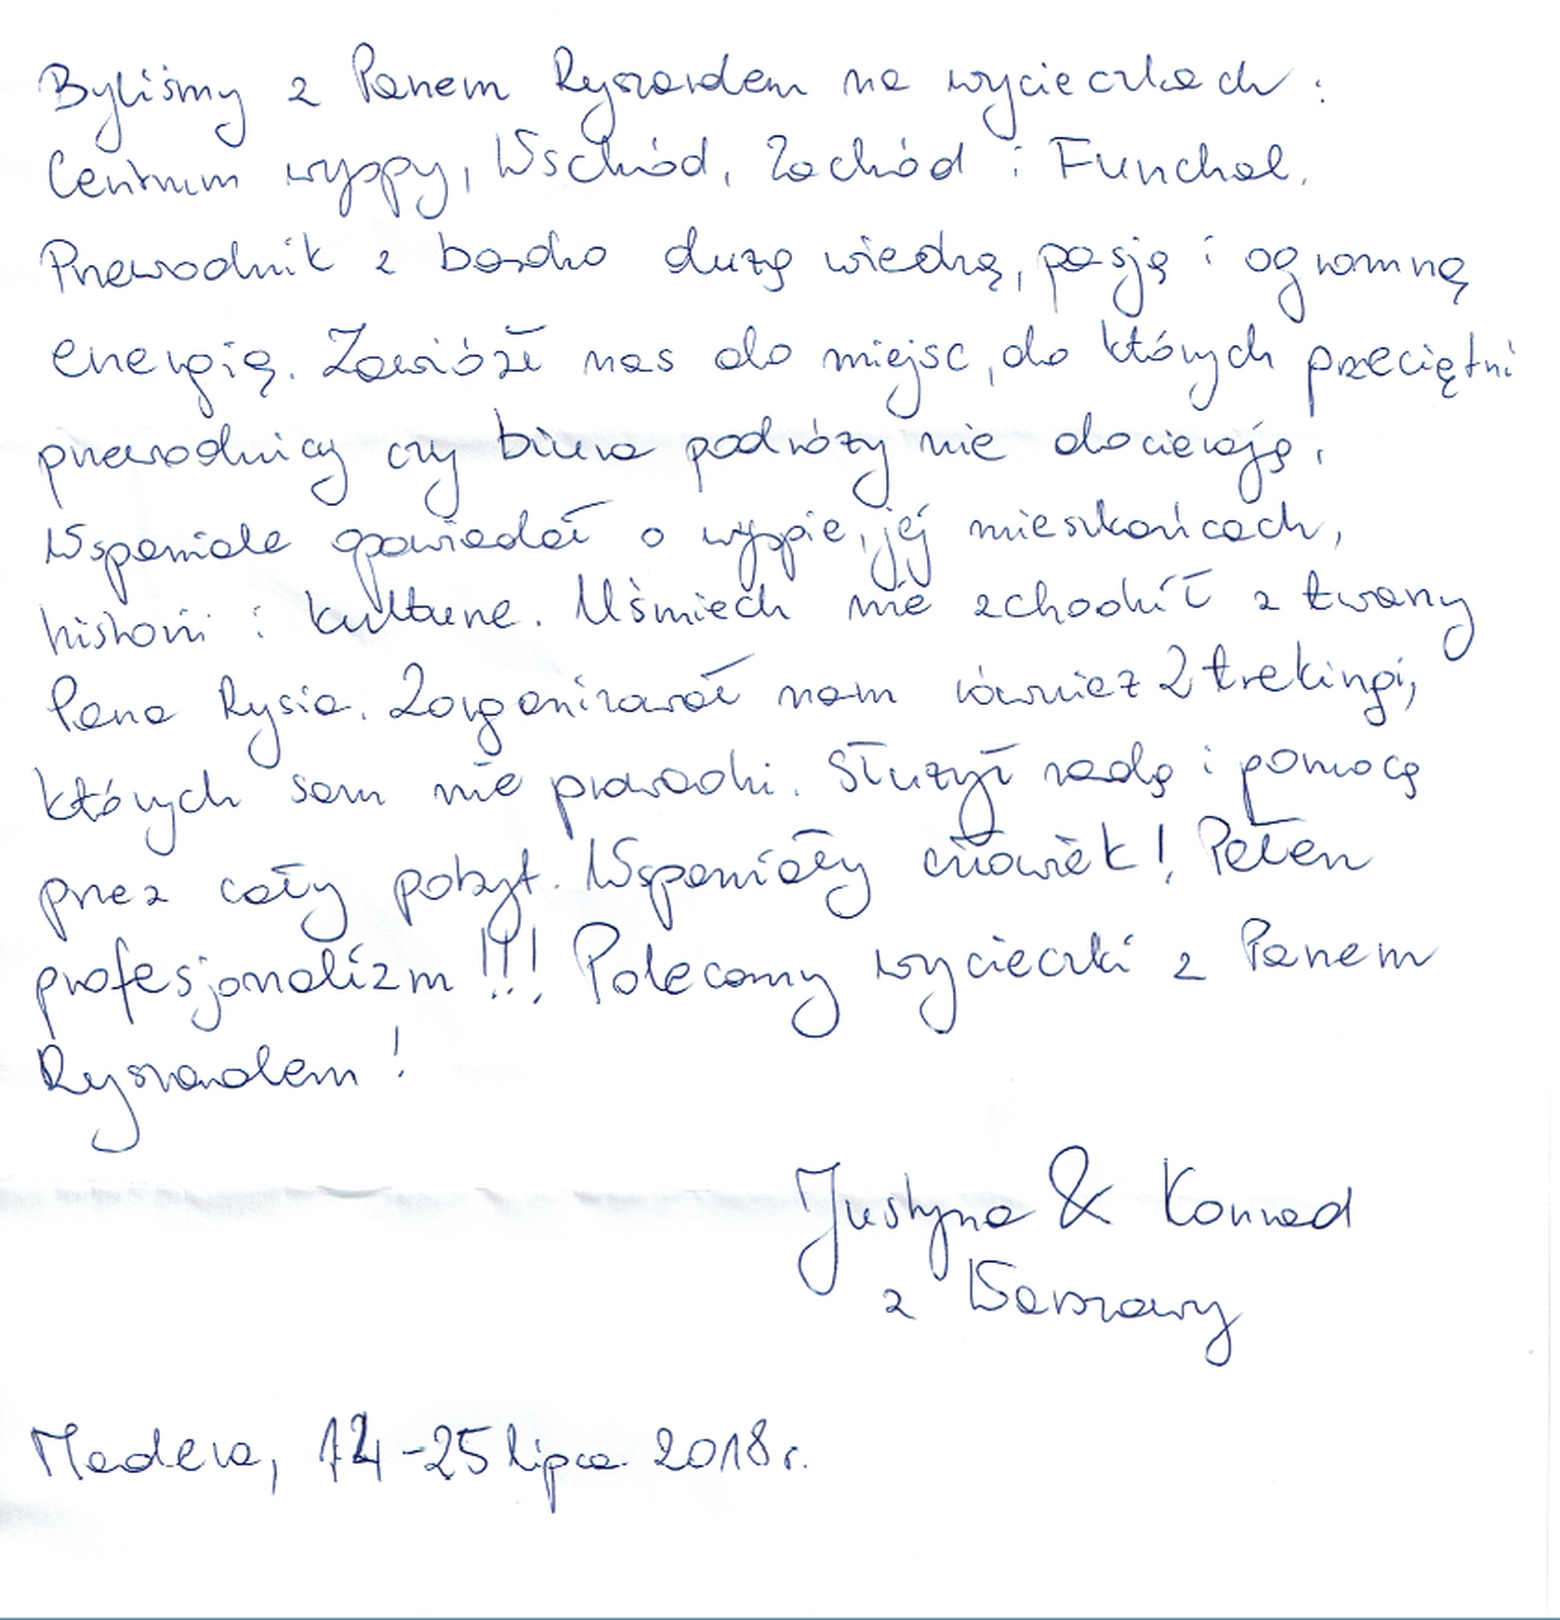 Byliśmy z Panem Ryszardem na wycieczkach:
Centrum wyspy, Wschód, Zachód i Funchal.
Przewodnik z bardzo dużą wiedzą, pasją i ogromną
energią. Zawiózł nas do miejsc, do których przeciętni
przewodnicy czy biura podróży nie docierają.
Wspaniale opowiadał o wyspie, jej mieszkańcach,
historii i kulturze. Uśmiech nie schodził z twarzy
Pana Rysia. Zorganizował nam również 2 trekingi,
których sam nie prowadzi. Służył radą i pomocą
przez cały pobyt. Wspaniały człowiek! Pełen
profesjonalizm!!! Polecamy wycieczki z Panem
Ryszardem!
Justyna & Konrad
z Warszawy
Madera, -25 lipca 2018r.